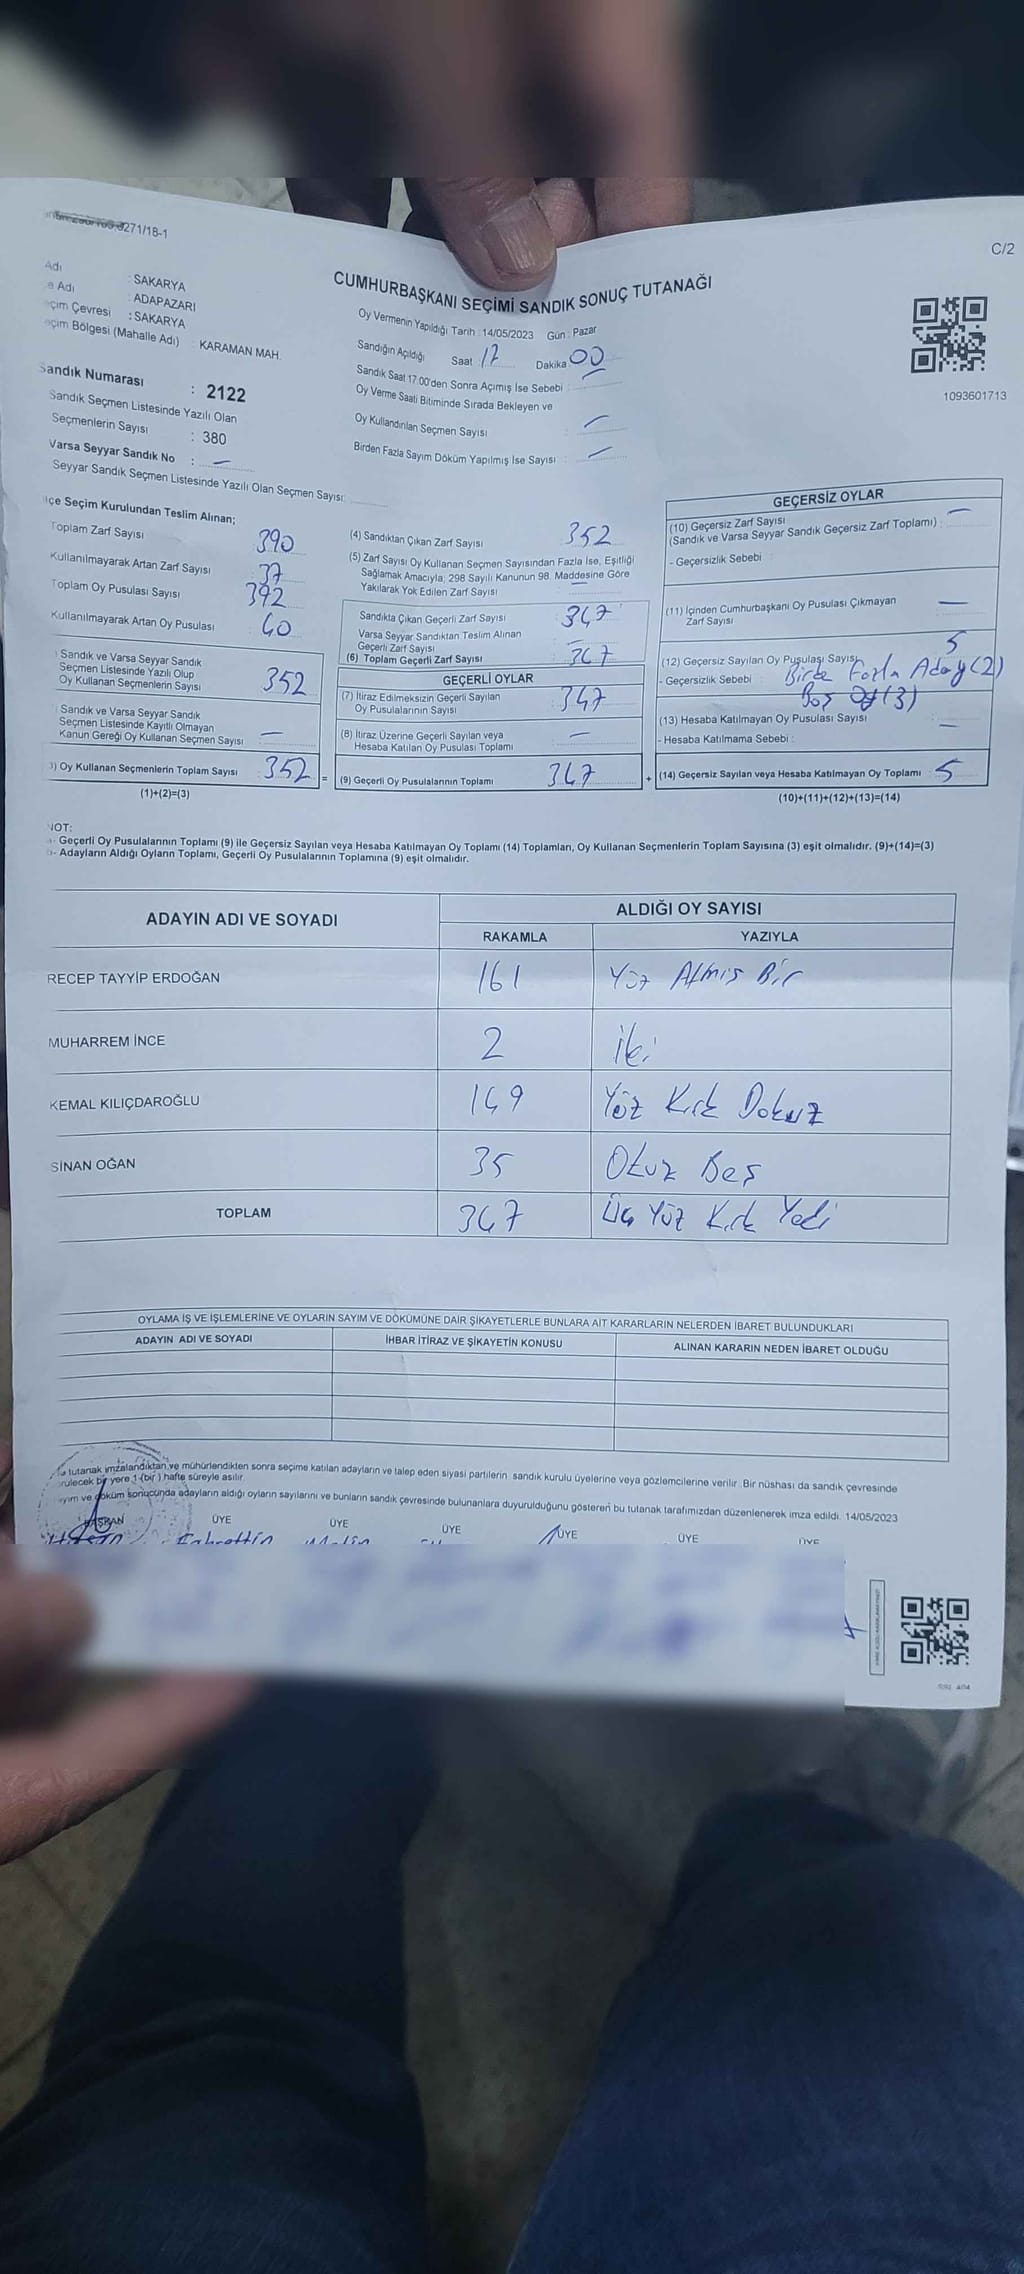 271/18-1
C/2
CUMHURBAŞKANI SEÇİMİ SANDIK SONUÇ TUTANAĞI
Adı : SAKARYA
Adı : ADAPAZARI
Çevresi : SAKARYA
Bölgesi (Mahalle Adı) : KARAMAN MAH.
Sandık Numarası : 2122
Sandık Seçmen Listesinde Yazılı Olan
Seçmenlerin Sayısı : 380
Varsa Seyyar Sandık No : —
Seyyar Sandık Seçmen Listesinde Yazılı Olan Seçmen Sayısı:
Oy Vermenin Yapıldığı Tarih : 14/05/2023 Gün : Pazar
Sandığın Açıldığı Saat 17 Dakika 00
Sandık Saat 17:00'den Sonra Açımış İse Sebebi :
Oy Verme Saati Bitiminde Sırada Bekleyen ve
Oy Kullandırılan Seçmen Sayısı : —
Birden Fazla Sayım Döküm Yapılmış İse Sayısı : —
1093601713
İlçe Seçim Kurulundan Teslim Alınan;
Toplam Zarf Sayısı 390
Kullanılmayarak Artan Zarf Sayısı 37
Toplam Oy Pusulası Sayısı 392
Kullanılmayarak Artan Oy Pusulası 40
Sandık ve Varsa Seyyar Sandık
Seçmen Listesinde Yazılı Olup
Oy Kullanan Seçmenlerin Sayısı 352
Sandık ve Varsa Seyyar Sandık
Seçmen Listesinde Kayıtlı Olmayan
Kanun Gereği Oy Kullanan Seçmen Sayısı —
) Oy Kullanan Seçmenlerin Toplam Sayısı 352 =
(1)+(2)=(3)
(4) Sandıktan Çıkan Zarf Sayısı 352
(5) Zarf Sayısı Oy Kullanan Seçmen Sayısından Fazla İse, Eşitliği
Sağlamak Amacıyla; 298 Sayılı Kanunun 98. Maddesine Göre
Yakılarak Yok Edilen Zarf Sayısı —
Sandıkta Çıkan Geçerli Zarf Sayısı 347
Varsa Seyyar Sandıktan Teslim Alınan
Geçerli Zarf Sayısı —
(6) Toplam Geçerli Zarf Sayısı 347
GEÇERLİ OYLAR
(7) İtiraz Edilmeksizin Geçerli Sayılan
Oy Pusulalarının Sayısı 347
(8) İtiraz Üzerine Geçerli Sayılan veya
Hesaba Katılan Oy Pusulası Toplamı —
(9) Geçerli Oy Pusulalarının Toplamı 347 +
GEÇERSİZ OYLAR
(10) Geçersiz Zarf Sayısı
(Sandık ve Varsa Seyyar Sandık Geçersiz Zarf Toplamı) : —
- Geçersizlik Sebebi :
(11) İçinden Cumhurbaşkanı Oy Pusulası Çıkmayan
Zarf Sayısı —
(12) Geçersiz Sayılan Oy Pusulası Sayısı 5
- Geçersizlik Sebebi : Birde Fazla Aday (2)
Boş (3)
(13) Hesaba Katılmayan Oy Pusulası Sayısı —
- Hesaba Katılmama Sebebi :
(14) Geçersiz Sayılan veya Hesaba Katılmayan Oy Toplamı 5
(10)+(11)+(12)+(13)=(14)
NOT:
- Geçerli Oy Pusulalarının Toplamı (9) ile Geçersiz Sayılan veya Hesaba Katılmayan Oy Toplamı (14) Toplamları, Oy Kullanan Seçmenlerin Toplam Sayısına (3) eşit olmalıdır. (9)+(14)=(3)
- Adayların Aldığı Oyların Toplamı, Geçerli Oy Pusulalarının Toplamına (9) eşit olmalıdır.
ADAYIN ADI VE SOYADI ALDIĞI OY SAYISI
RAKAMLA YAZIYLA
RECEP TAYYİP ERDOĞAN 161 Yüz Atmış Bir
MUHARREM İNCE 2 İki
KEMAL KILIÇDAROĞLU 149 Yüz Kırk Dokuz
SİNAN OĞAN 35 Otuz Beş
TOPLAM 347 Üç Yüz Kırk Yedi
OYLAMA İŞ VE İŞLEMLERİNE VE OYLARIN SAYIM VE DÖKÜMÜNE DAİR ŞİKAYETLERLE BUNLARA AİT KARARLARIN NELERDEN İBARET BULUNDUKLARI
ADAYIN ADI VE SOYADI İHBAR İTİRAZ VE ŞİKAYETİN KONUSU ALINAN KARARIN NEDEN İBARET OLDUĞU
tutanak imzalandıktan ve mühürlendikten sonra seçime katılan adayların ve talep eden siyasi partilerin sandık kurulu üyelerine veya gözlemcilerine verilir. Bir nüshası da sandık çevresinde
bir yere 1 (bir) hafta süreyle asılır.
ve döküm sonucunda adayların aldığı oyların sayılarını ve bunların sandık çevresinde bulunanlara duyurulduğunu gösteren bu tutanak tarafımızdan düzenlenerek imza edildi. 14/05/2023
BAŞKAN ÜYE ÜYE ÜYE ÜYE ÜYE ÜYE